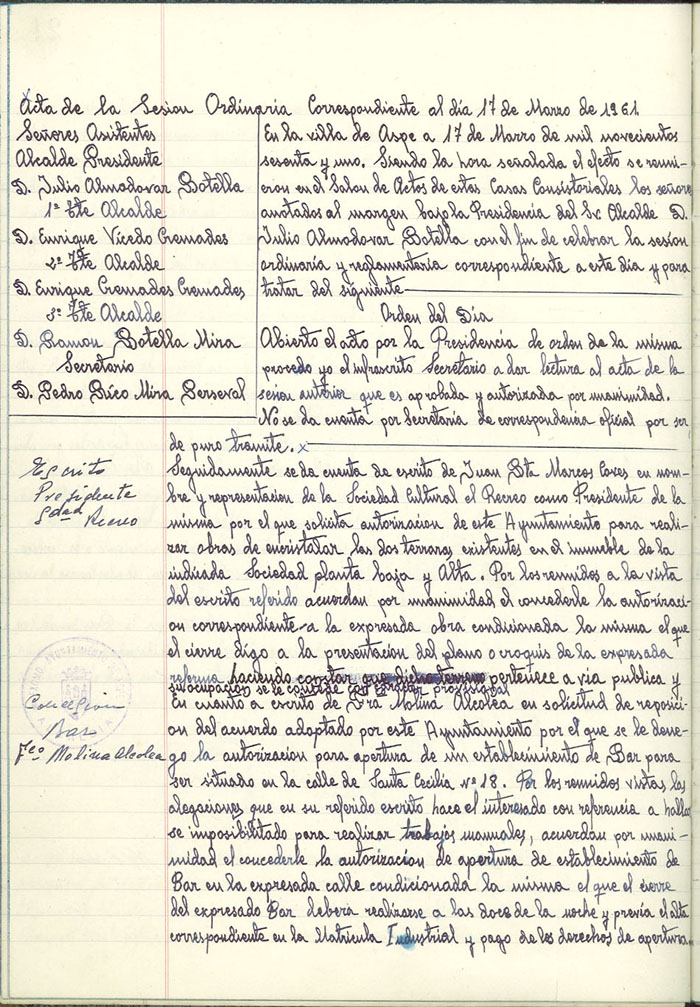 Acta de la Sesion Ordinaria Correspondiente al día 17 de Marzo de 1961.
Señores Asistentes
Alcalde Presidente
D. Julio Almodovar Botella
1º Tte Alcalde
D. Enrique Vicedo Cremades
2º Tte Alcalde
D. Enrique Cremades Cremades
3º Tte Alcalde
D. Ramon Botella Mira
Secretario
D. Pedro Mira Perseval
En la villa de Aspe a 17 de Marzo de mil novecientos
sesenta y uno. Siendo la hora señalada el efecto se reuni-
eron en el Salon de Actos de estas Casas Consistoriales los señores
anotados al margen bajo la Presidencia del Sr Alcalde D.
Julio Almodovar Botella con el fin de celebrar la sesion
ordinaria y reglamentaria correspondiente a este dia y para
tratar del siguiente
Orden del Dia
Abierto el acto por la Presidencia de orden de la misma
procedo yo el infrascrito Secretario a dar lectura al acta de la
sesion anterior que es aprobada y autorizada por unanimidad.
No se da cuenta por Secretaria de correspondencia oficial por ser
de puro tramite. x
Escrito
Presidente
Sdad Recreo
Seguidamente se da cuenta de escrito de Juan Bta Marcos Caves en nom-
bre y representacion de la Sociedad Cultural el Recreo como Presidente de la
misma por el que solicita autorizacion de este Ayuntamiento para reali-
zar obras de encristalar las dos terrazas existentes en el inmueble de la
indicada Sociedad planta baja y Alta. Por los reunidos a la vista
del escrito referido acuerdan por unanimidad el concederle la autorizaci-
on correspondiente a la expresada obra condicionada la misma el que
el cierre digo a la presentacion del plano o croquis de la expresada
reforma haciendo constar que dicho terreno pertenece a via publica y
su ocupacion se le concede con caracter provisional
Concesion
Bar
Fco Molina Alcolea
En cuanto a escrito de Molina Alcolea en solicitud de reposici-
on del acuerdo adoptado por este Ayuntamiento por el que se le dene-
go la autorizacion para apertura de un establecimiento de Bar para
ser situado en la calle de Santa Cecilia nº 18. Por los reunidos vistas las
alegaciones que en su referido escrito hace el interesado con referencia a hallar
se imposibilitado para realizar trabajos manuales, acuerdan por unani-
midad el concederle la autorizacion de apertura de establecimiento de
Bar en la expresada calle condicionada la misma el que el cierre
del expresado Bar debera realizarse a las doce de la noche y previa el alta
correspondiente en la Matricula Industrial y pago de los derechos de apertura.